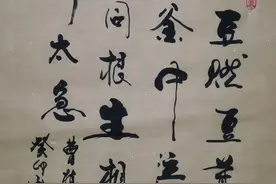 豆燃豆萁
釜中泣
同根生相
太急
曹植
癸卯